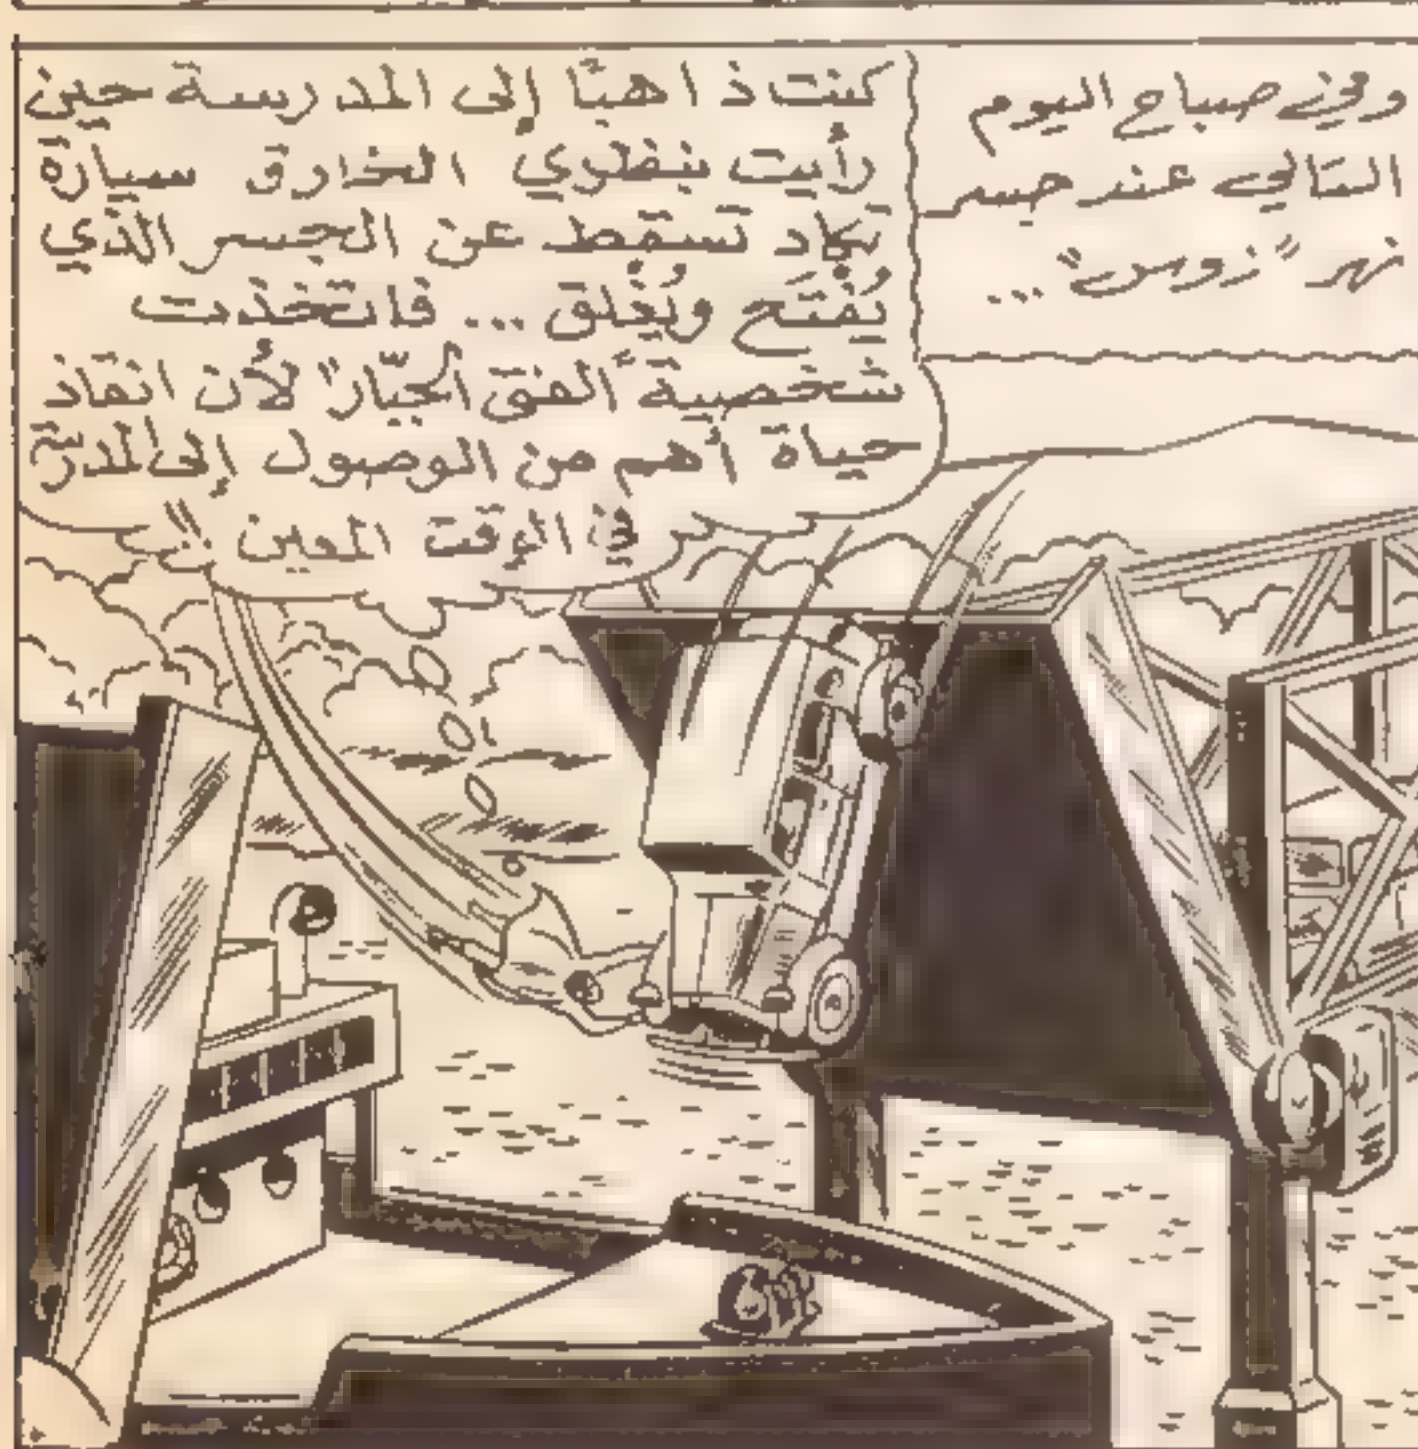 وفي صباح اليوم
التالي عند جسر
نهر "زوس"...
كنت ذاهبًا إلى المدرسة حين
رأيت بنظري الخارق سيارة
تكاد تسقط عن الجسر الذي
يُفتَح ويُغلق... فاتخذت
شخصية "الفتى الجبّار" لأن انقاذ
حياة أهم من الوصول إلى المدرسة
في الوقت المعين !!